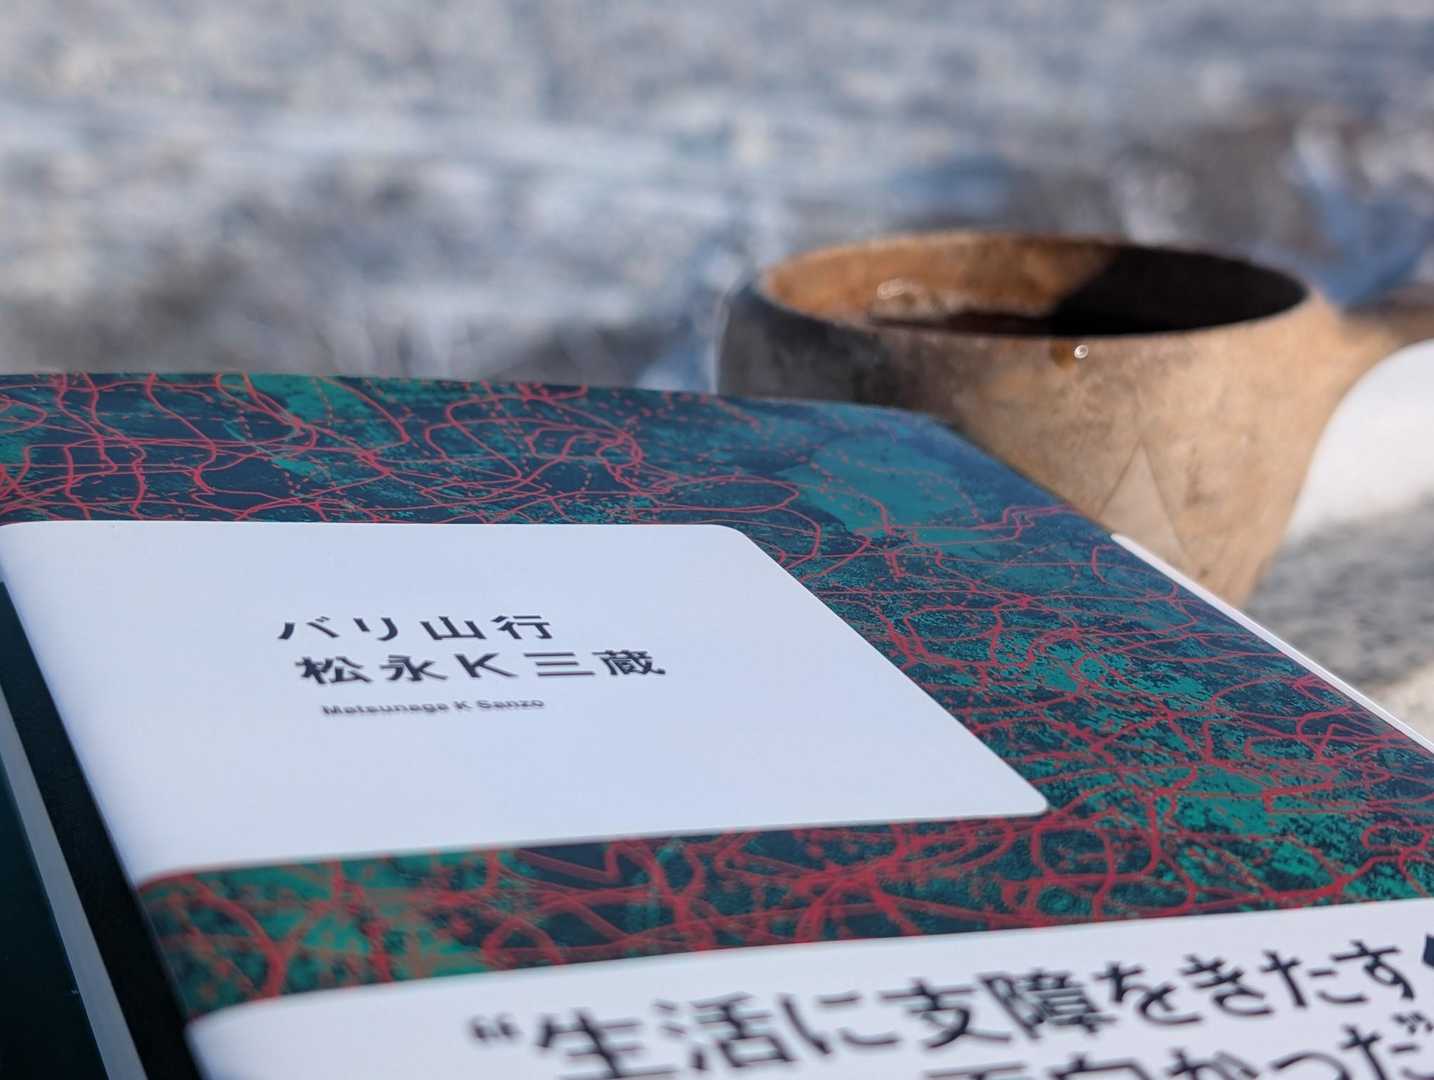 バリ山行
松永K三蔵
Matsunaga K Sanzo
“生活に支障をきたすく
面白かった”